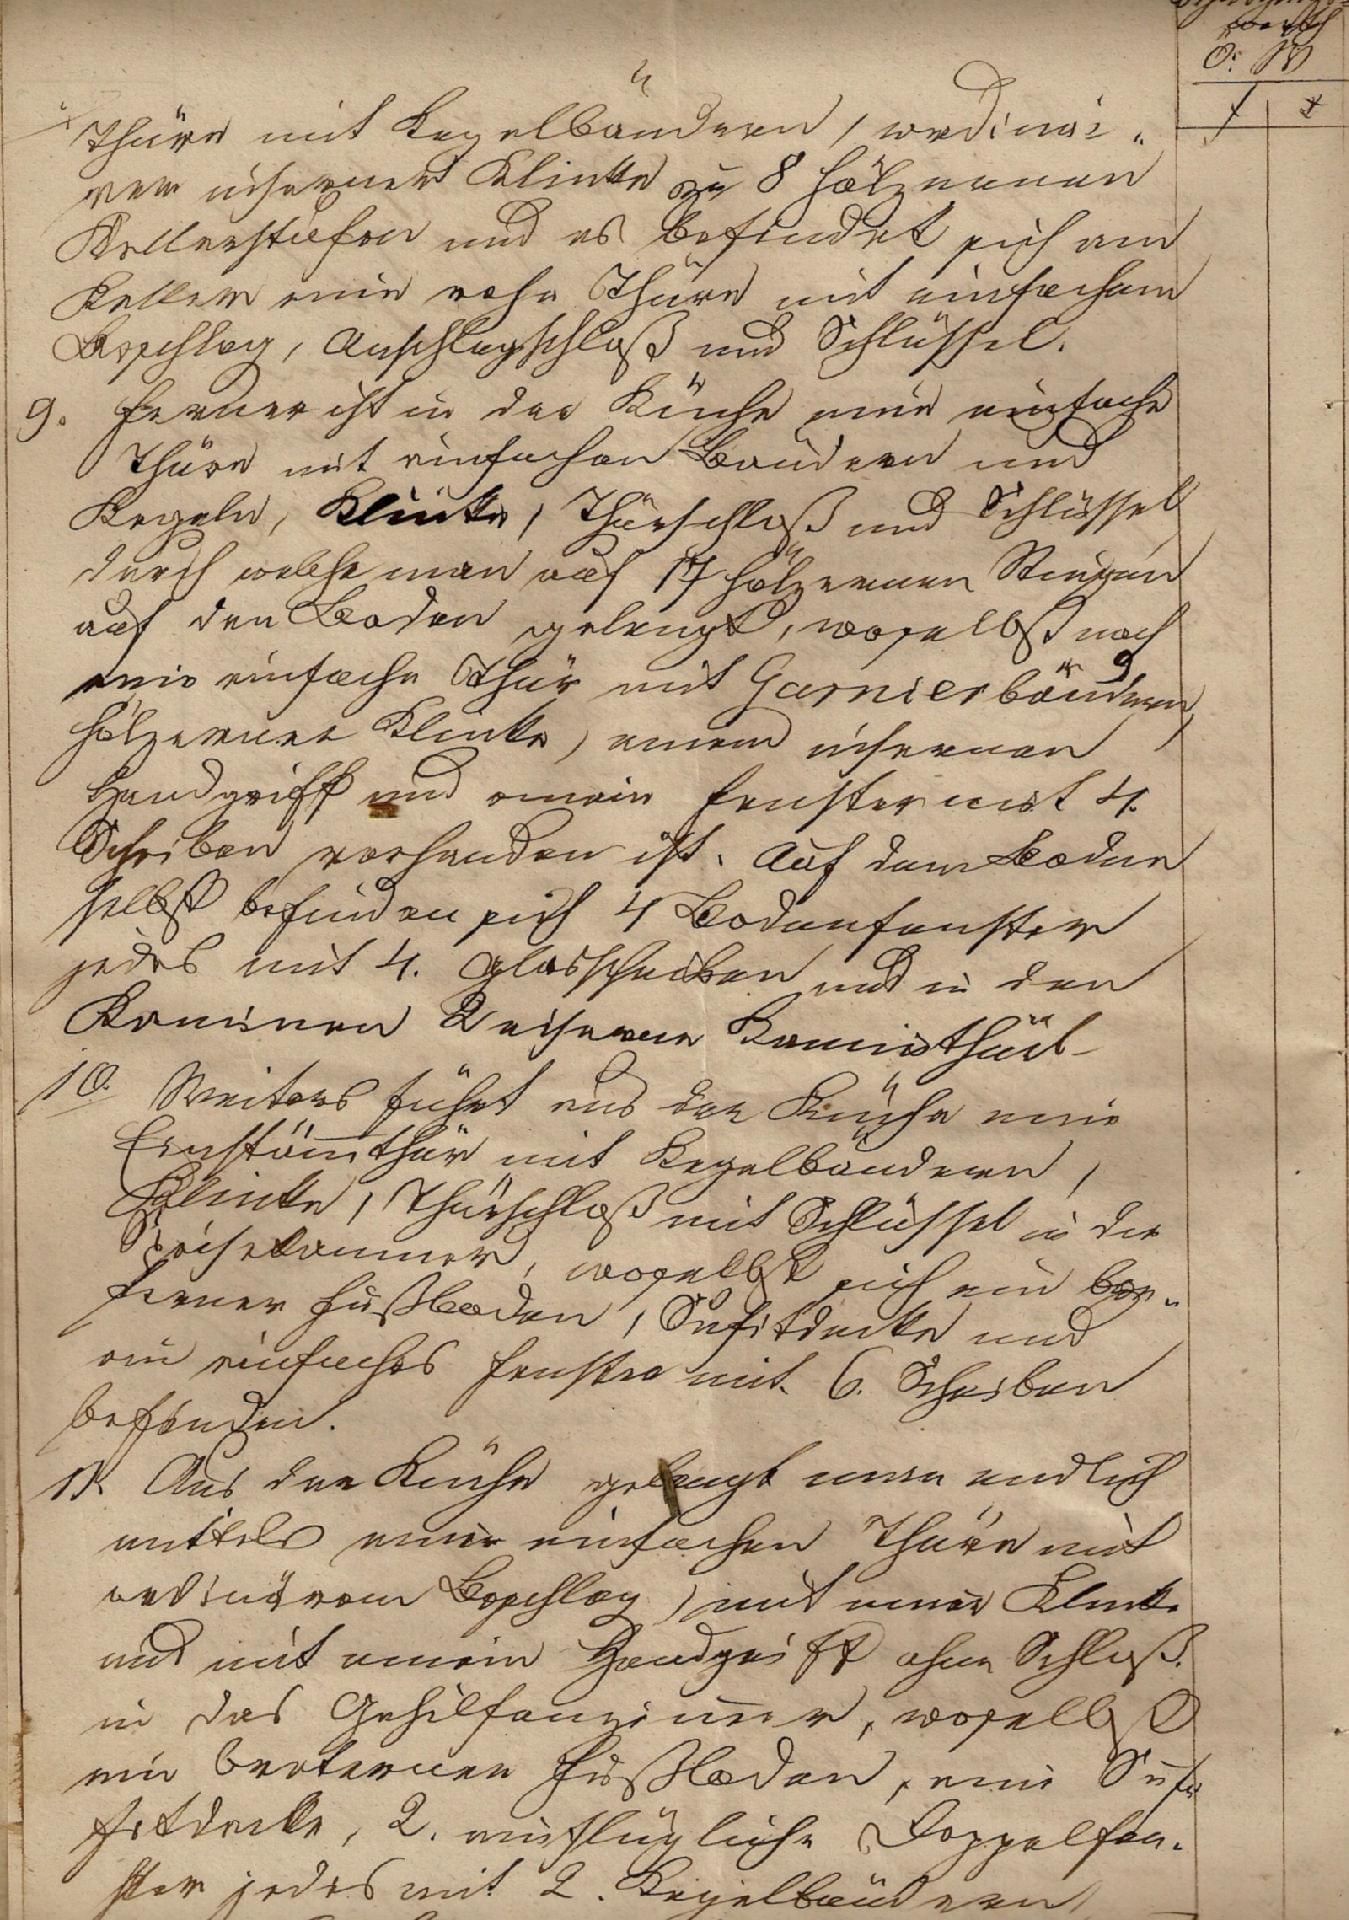 Schätzungs-
werth
Ö: W
f x
Thüre mit Kegelbändern, ordinä-
rer eiserner Klinke zu 8 hölzernen
Kellerstufen und es befindet sich am
Keller eine rohe Thüre mit einfachem
Beschlag, Anschlagschloß und Schlüssel.
9. Ferner ist in der Küche eine einfache
Thüre mit einfachen Bändern und
Kegeln, Klinke, Thürschloß und Schlüssel
durch welche man auf 17 hölzernen Stiegen
auf den Boden gelangt, woselbst noch
eine einfache Thür mit Garnierbändern,
hölzerner Klinke, einem eisernen
Handgriff und einem Fenster mit 4.
Scheiben vorhanden ist. Auf dem Boden
selbst befinden sich 4 Bodenfenster
jedes mit 4. Glasscheiben und in den
Kaminen 2 eiserne Kaminthürl-
10. Weiters führt aus der Küche eine
thür mit Kegelbändern,
Klinke, Thürschloß mit Schlüssel in die
Speisekammer, woselbst sich ein
Fußboden, Sufitdecke und
ein einfaches Fenster mit 6. Scheiben
befinden.
11. Aus der Küche gelangt man endlich
mittels einer einfachen Thüre mit
ordinärem Beschlag, mit einer Klinke
und mit einem Handgriff ohne Schloß
in das Gehilfenzimmer, woselbst
ein breterner Fußboden, eine Suf-
fitdecke, 2. einflügliche Doppelfen-
ster jedes mit 2. Kegelbändern,